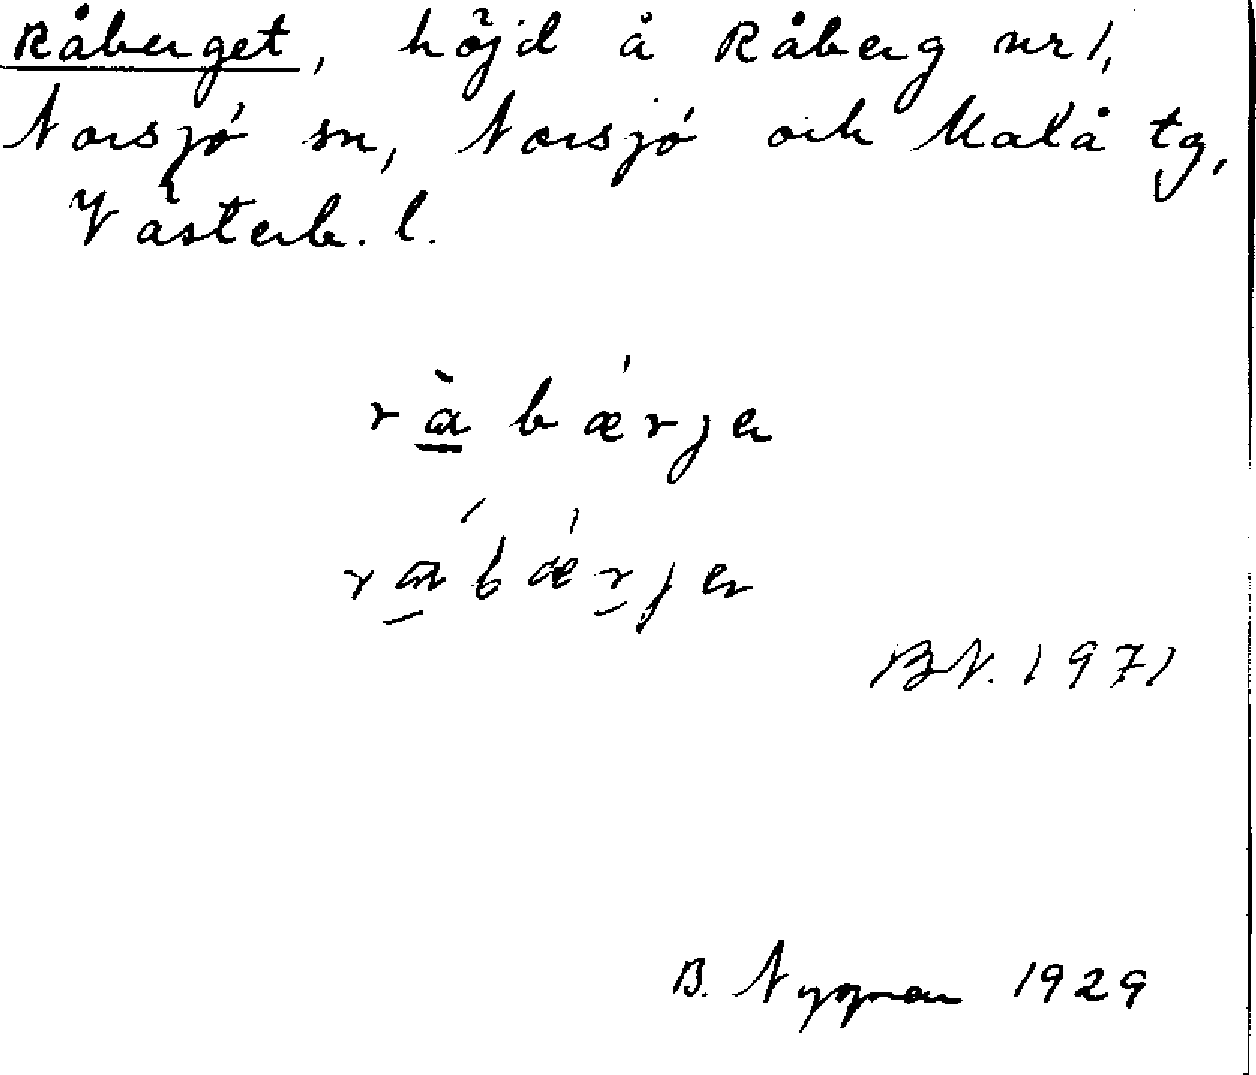 Råberget, höjd å Råberg nr 1,
Norsjö sn, Norsjö och Malå tg,
Västerb. l.
rà̱bǽrjeɴ
rá̱bǽr̲jeɴ
BN. 1971
B. Nyman 1929